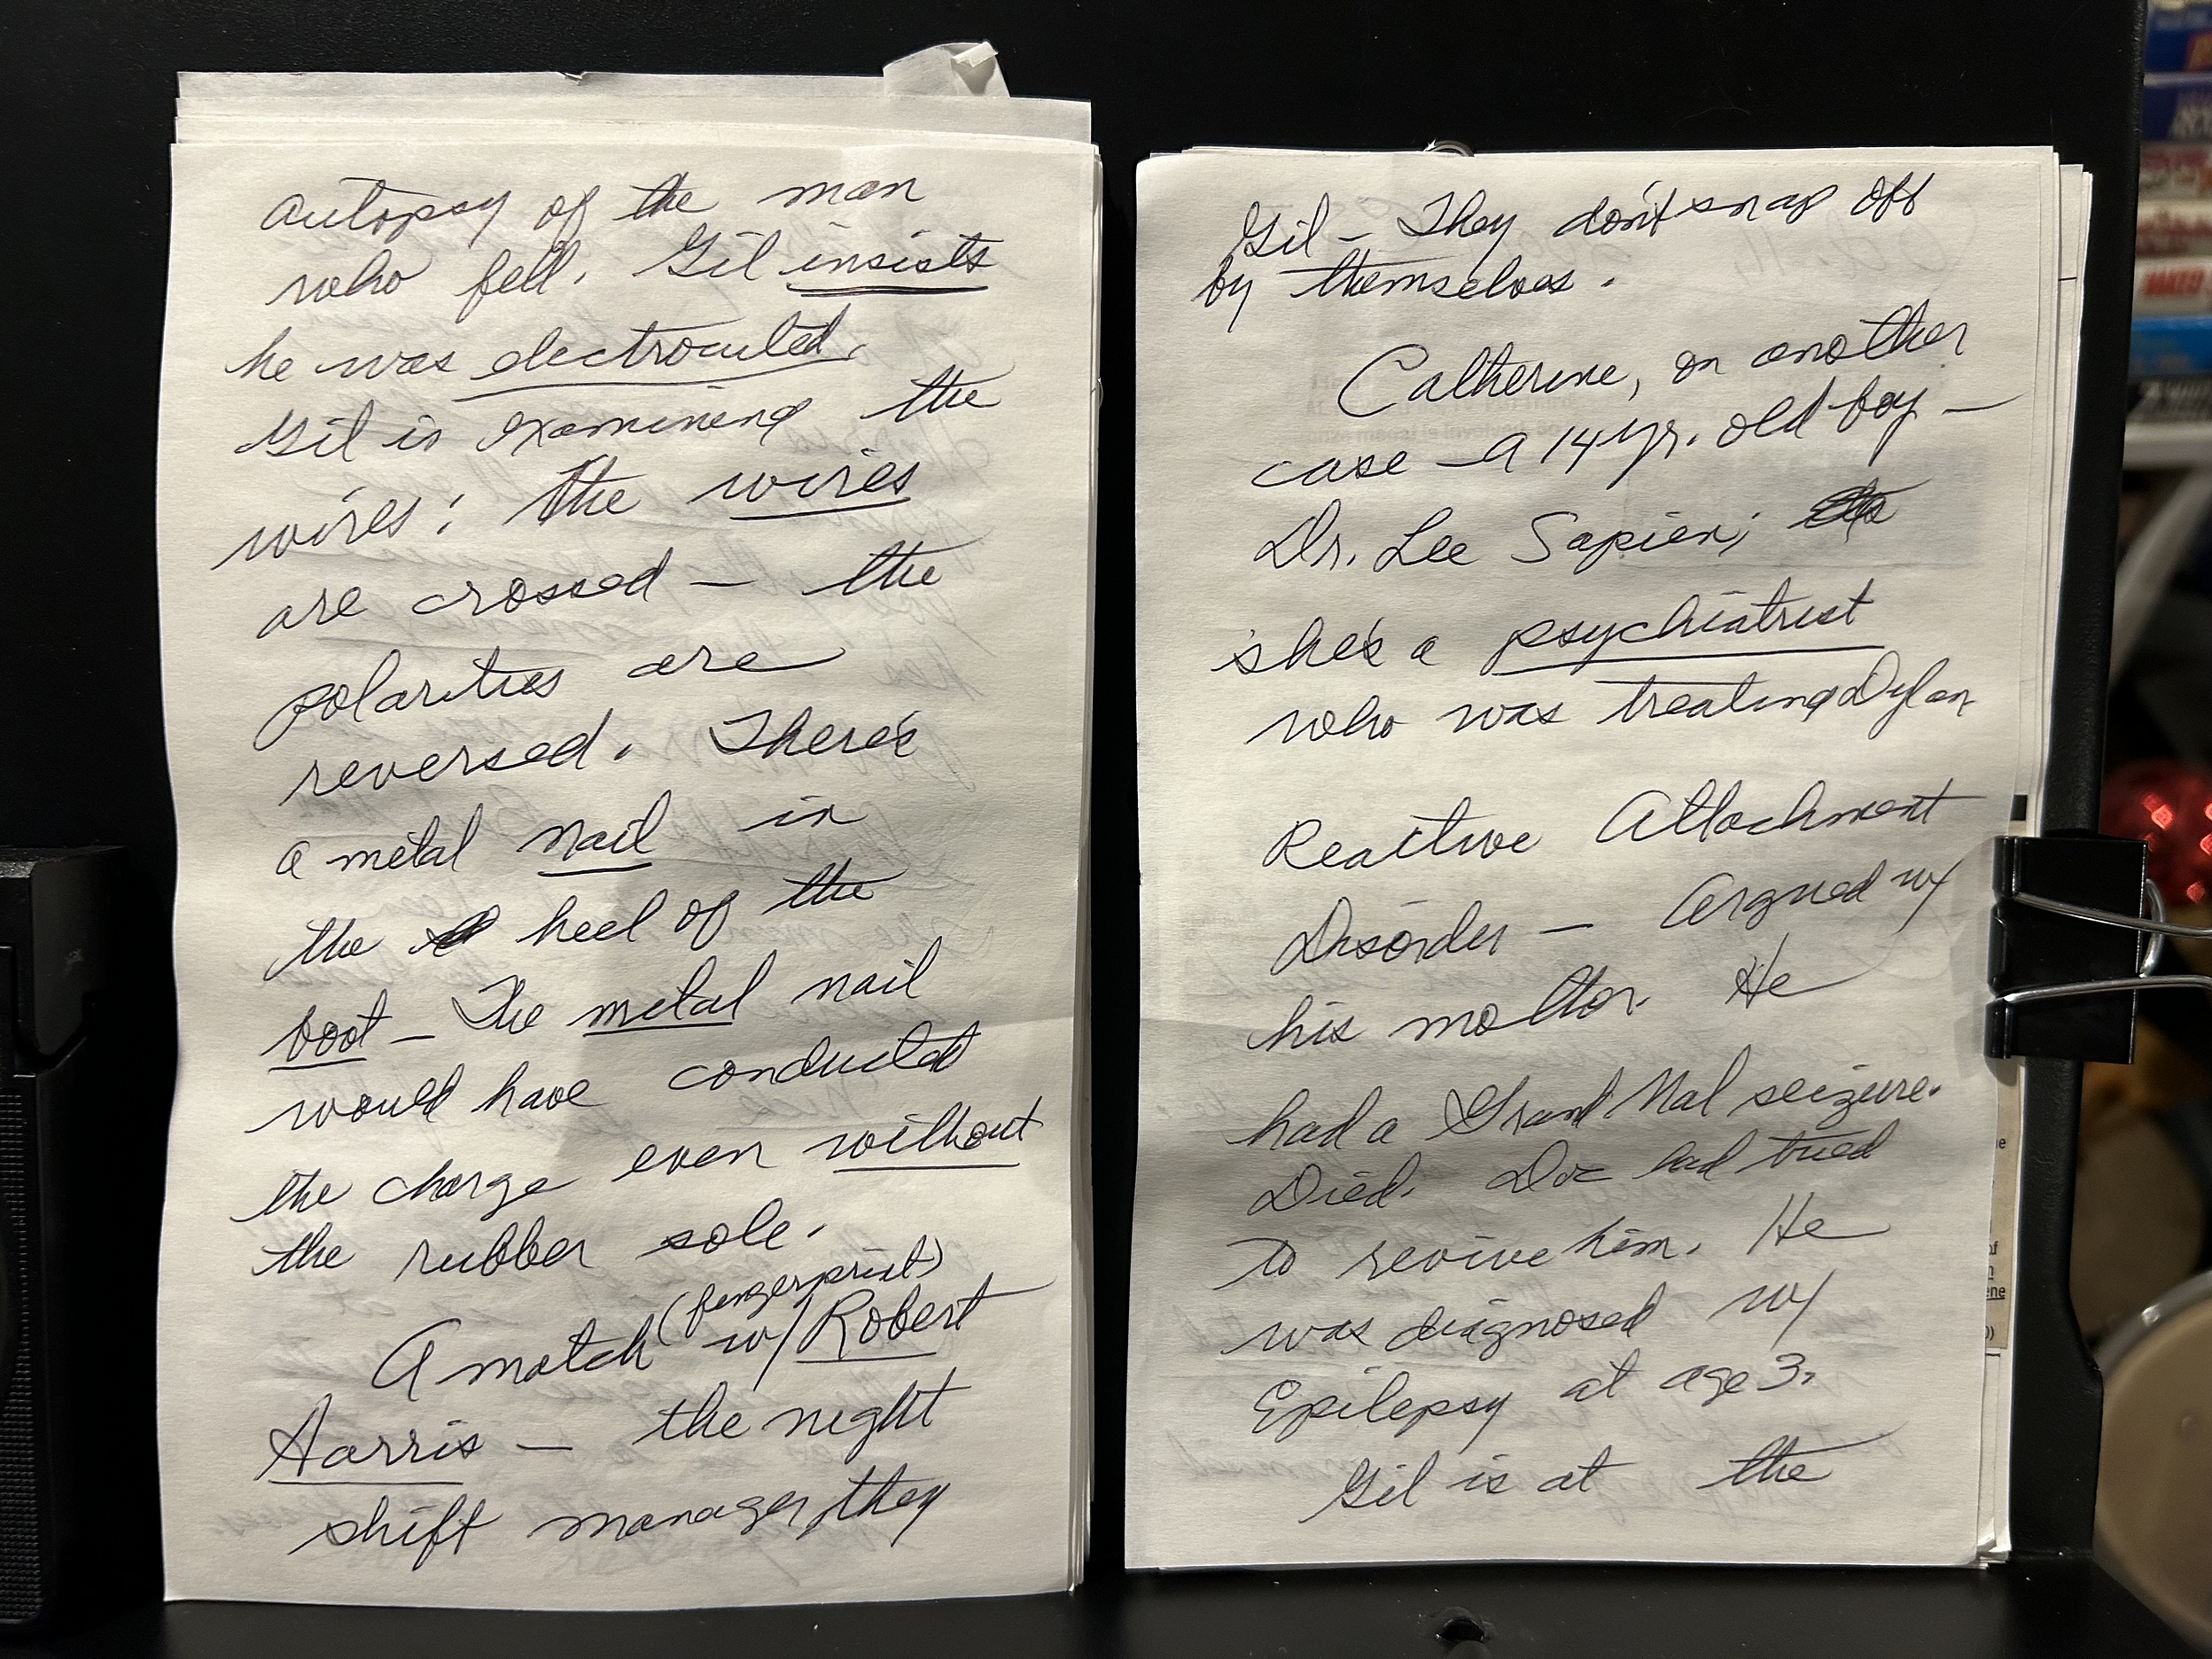 autopsy of the man
who fell. Gil insists
he was electrocuted.
Gil is examining the
wires: the wires
are crossed — the
polarities are
reversed. There's
a metal nail in
the heel of the
boot — The metal nail
would have conducted
the charge even without
the rubber sole.
(fingerprint)
A match w/ Robert
Harris — the night
shift manager, they
Gil — They don't snap off
by themselves.
Catherine, on another
case — a 14 yr. old boy —
Dr. Lee Sapien;
she's a psychiatrist
who was treating Dylan
Reactive Attachment
Disorder — argued w/
his mother. He
had a Grand Mal seizure.
Died. Doc had tried
to revive him. He
was diagnosed w/
Epilepsy at age 3.
Gil is at the